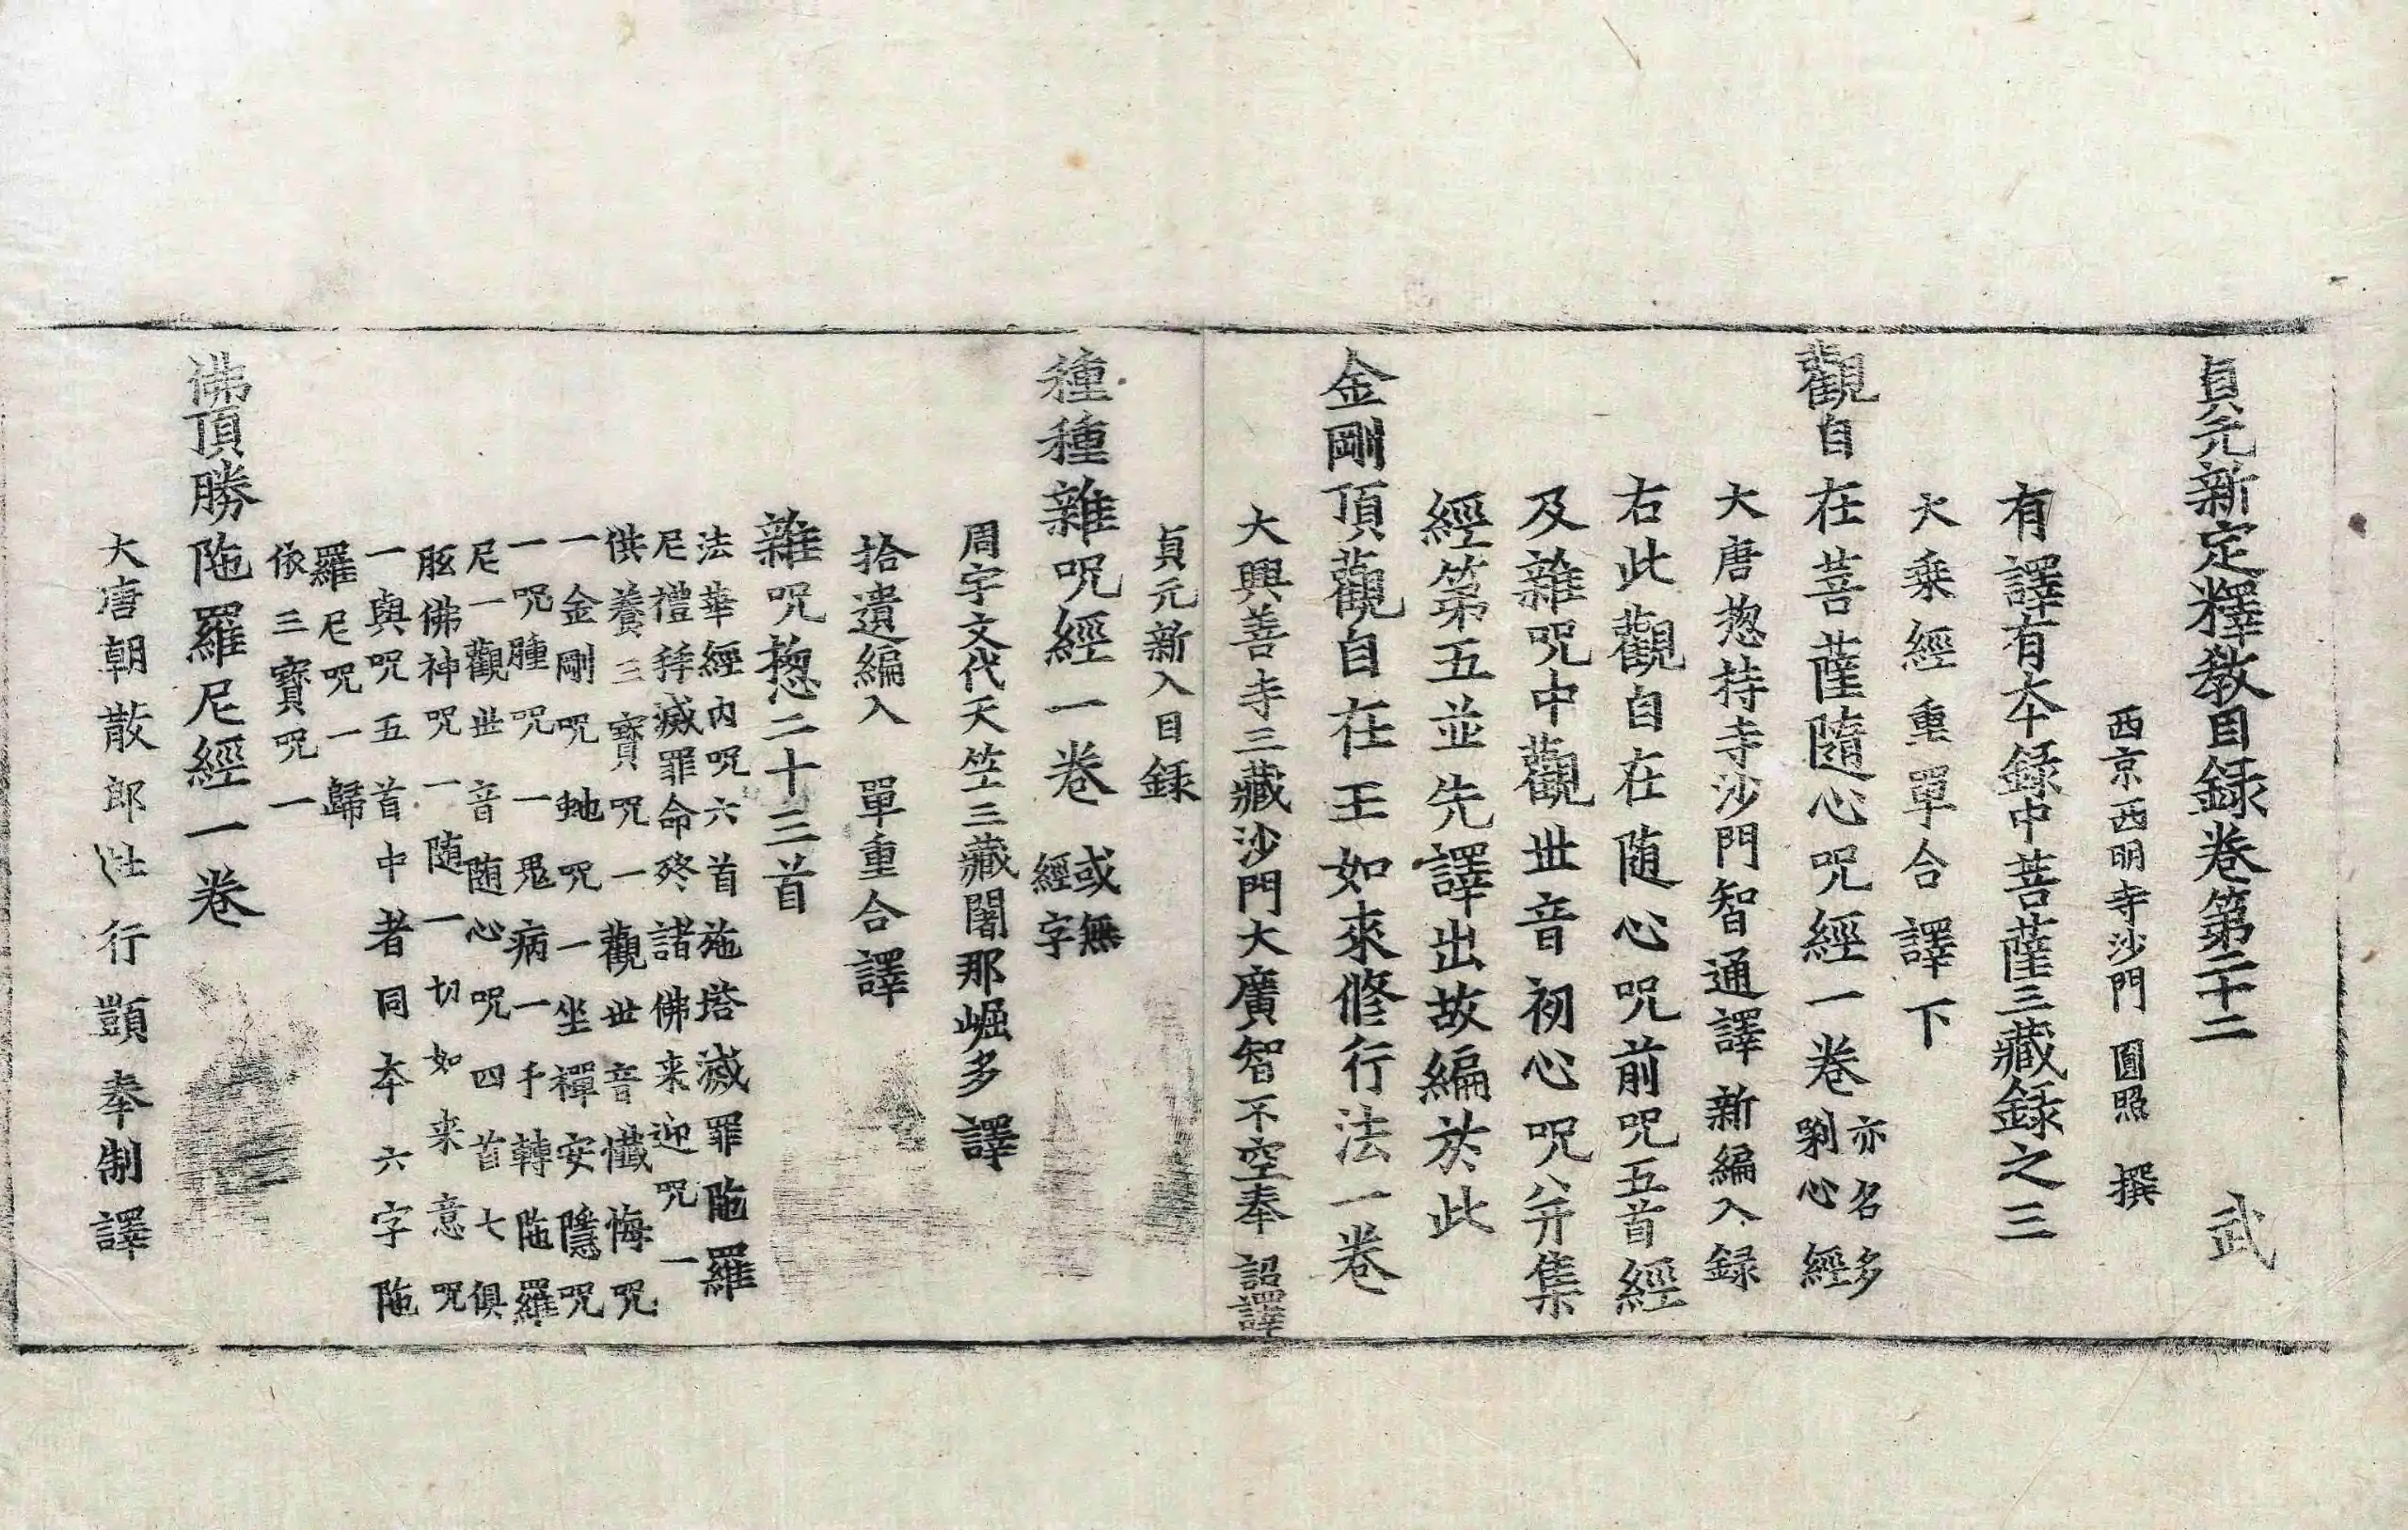 貞元新定釋教目録卷第二十二　武
西京西明寺沙門　圓照　撰
有譯有本録中菩薩三藏録之三
大乗經重單合譯下
觀自在菩薩隨心呪經一卷 亦名多
剎心經
大唐揔持寺沙門智通譯新編入録
右此觀自在随心呪前呪五首經
及雜呪中觀世音初心呪八并集
經第五並先譯出故編於此
金剛頂觀自在王如來修行法一卷
大興善寺三藏沙門大廣智不空奉　詔譯
貞元新入目録
種種雜呪經一卷 或無
經字
周宇文代天竺三藏闍那崛多譯
拾遺編入　單重合譯
雜呪揔二十三首
法華經内呪六首施塔滅罪陁羅
尼禮拜滅罪命終諸佛来迎呪一
供養三寶呪一觀世音懺悔呪
一金剛呪虵呪一坐禪安隱呪
一呪腫呪一鬼病一手轉陁羅
尼一觀世音随心呪四首七俱
胝佛神呪一随一切如来意呪
一與呪五首中者同本六字陁
羅尼呪一歸
依三寶呪一
佛頂勝陁羅尼經一卷
大唐朝散郎杜行顗奉制譯